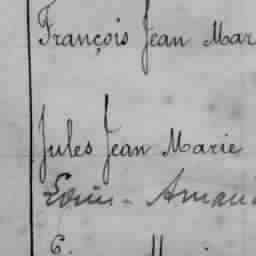 François Jean Mar
Jules Jean Marie
Louis - Amand